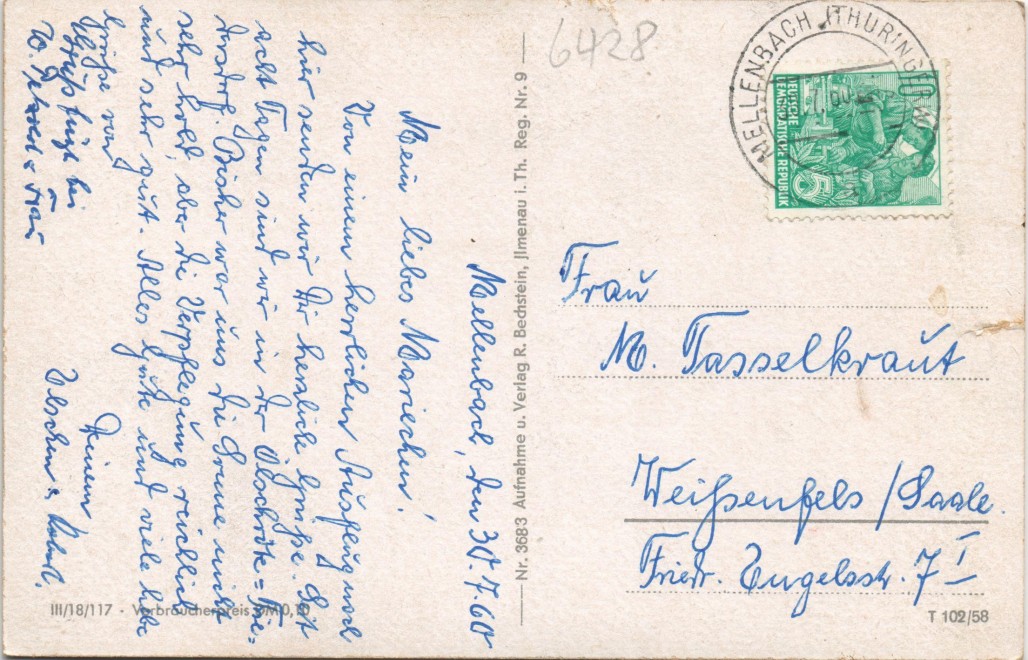 6428
MELLENBACH (THÜRING
10
DEUTSCHE
DEMOKRATISCHE REPUBLIK
5
Mellenbach, den 30.7.60
Mein liebes Mariechen!
Von einem herrlichen Ausflug nach
hier senden wir Dir herzliche Grüße. Seit
acht Tagen sind wir in der
Bisher war uns die Sonne nicht
sehr hold, aber die Verpflegung reichlich
und sehr gut. Alles Gute und viele liebe
Grüße von
Deinem
Gruß fügt bei
W. u. Frau
Nr. 3683 Aufnahme u. Verlag R. Bechstein, Jlmenau i. Th. Reg. Nr. 9
Frau
M. Tasselkraut
Weißenfels / Saale.
Friedr. Engelsstr. 7 I
III/18/117 · Verbraucherpreis DM 0,10
T 102/58